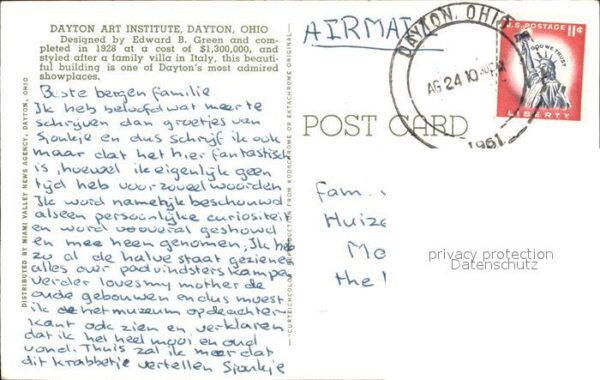 DAYTON ART INSTITUTE, DAYTON, OHIO
Designed by Edward B. Green and com-
pleted in 1928 at a cost of $1,300,000, and
styled after a family villa in Italy, this beauti-
ful building is one of Dayton's most admired
showplaces.
Beste bergen familie
Ik heb beloofd wat meer te
schrijven dan groetjes van
Sjonkje en dus schrijf ik ook
maar dat het hier fantastisch
is, hoewel ik eigenlijk geen
tijd heb voor zoveel woorden
Ik word namelijk beschouwd
als een persoonlijke curiositeit
en word overal geshowd
en mee heen genomen, Ik heb
zo al de halve staat gezien en
alles over padvindsterskampen
verder loves my mother de
oude gebouwen en dus moest
ik de het museum op de achter
kant ook zien en verklaren
dat ik het heel mooi en oud
vond. Thuis zal ik meer dat
dit krabbetje vertellen Sjonkje
DISTRIBUTED BY MIAMI VALLEY NEWS AGENCY, DAYTON, OHIO
"CURTEICHCOLOR" REPRODUCTION FROM KODACHROME OR EKTACHROME ORIGINAL
AIRMAIL
DAYTON, OHIO
AG 24 10 30 PM
1961
U.S. POSTAGE 11¢
IN GOD WE TRUST
LIBERTY
POST CARD
fam.
Huize
Mo
the
privacy protection
Datenschutz